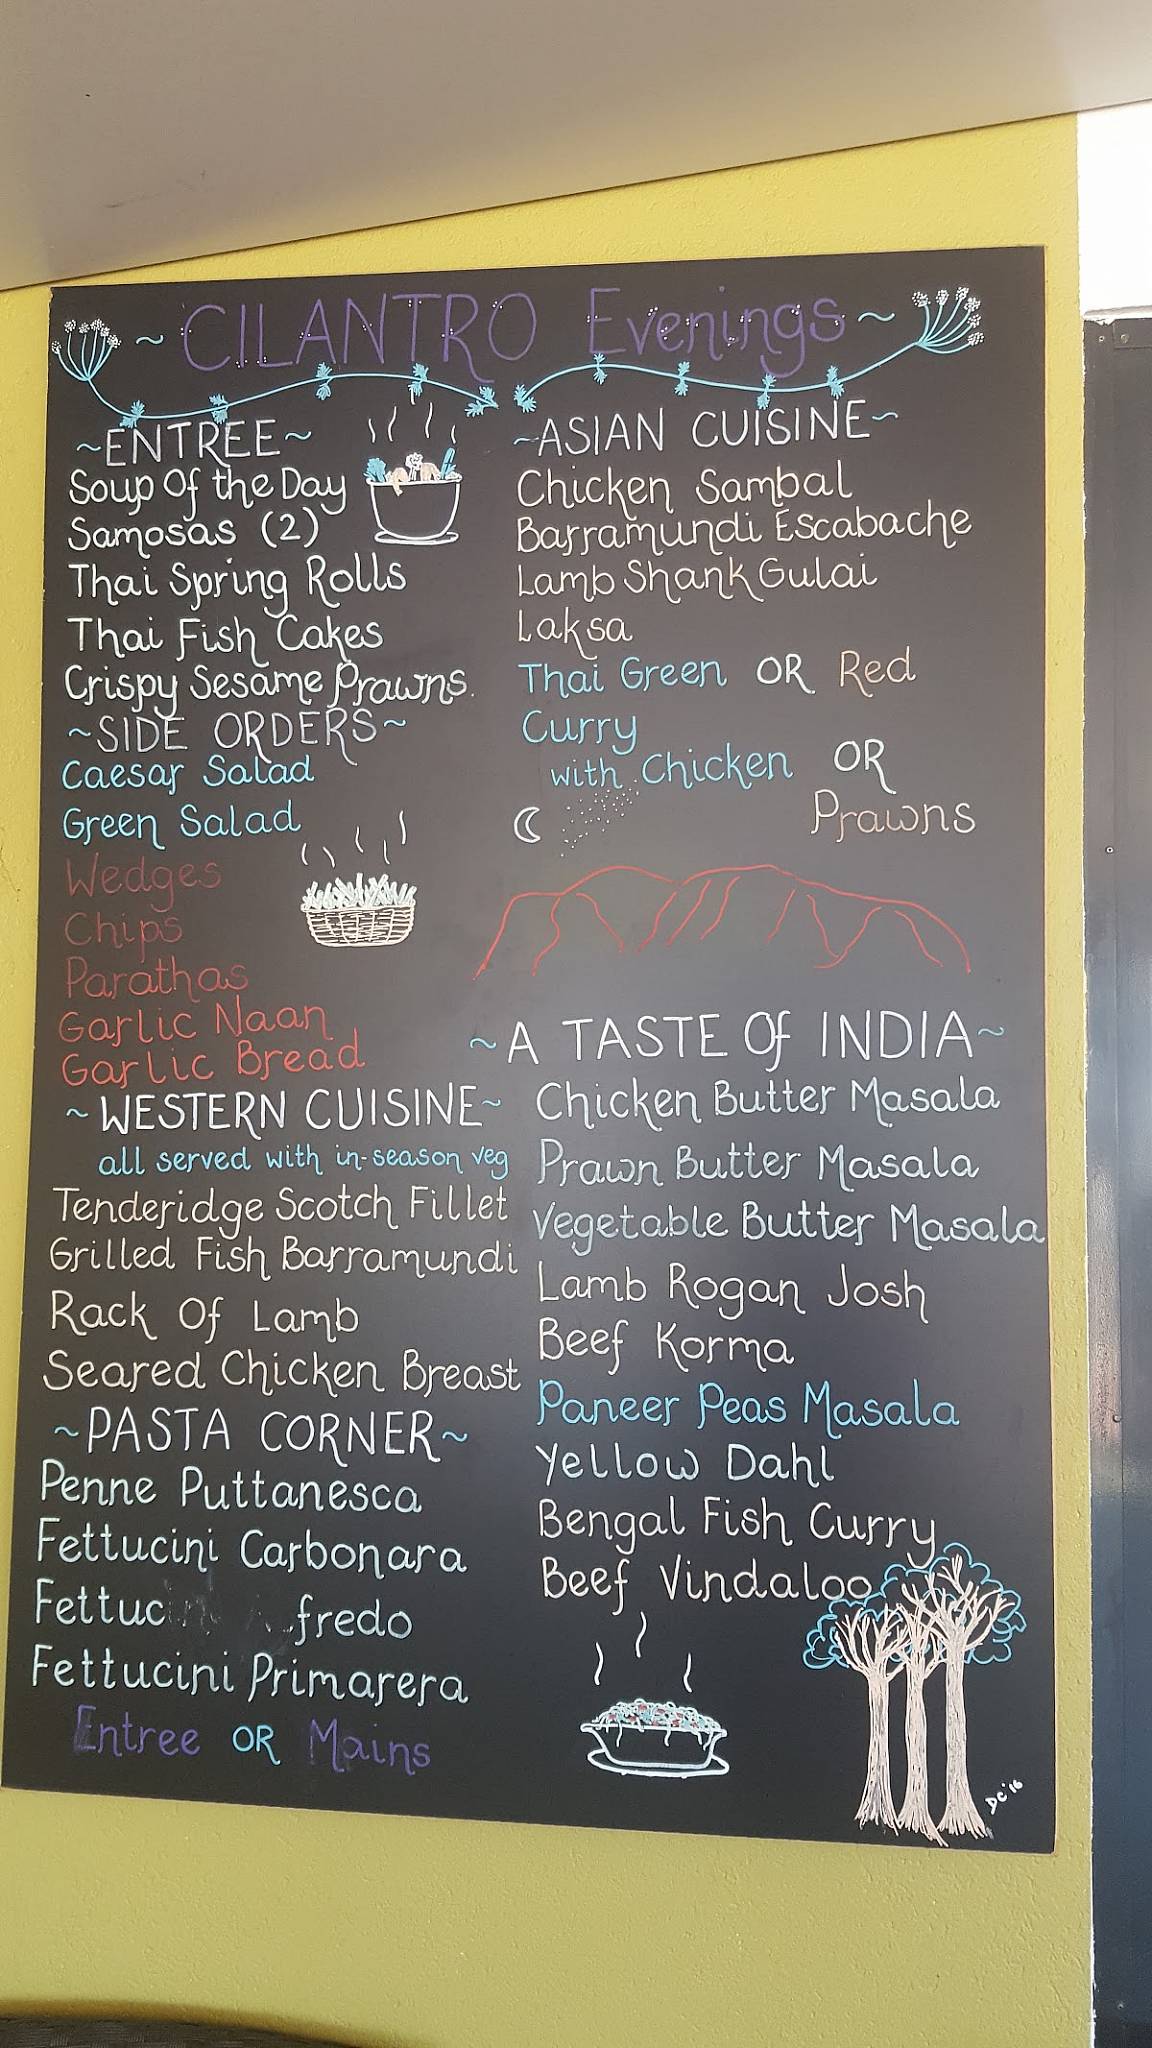 ~CILANTRO Evenings~
~ENTREE~
Soup Of the Day
Samosas (2)
Thai Spring Rolls
Thai Fish Cakes
Crispy Sesame Prawns.
~SIDE ORDERS~
Caesar Salad
Green Salad
Wedges
Chips
Parathas
Garlic Naan
Garlic Bread
~WESTERN CUISINE~
all served with in-season veg
Tenderidge Scotch Fillet
Grilled Fish Barramundi
Rack Of Lamb
Seared Chicken Breast
~PASTA CORNER~
Penne Puttanesca
Fettucini Carbonara
Fettuc fredo
Fettucini Primarera
Entree OR Mains
~ASIAN CUISINE~
Chicken Sambal
Barramundi Escabache
Lamb Shank Gulai
Laksa
Thai Green OR Red
Curry
with Chicken OR
Prawns
~A TASTE Of INDIA~
Chicken Butter Masala
Prawn Butter Masala
Vegetable Butter Masala
Lamb Rogan Josh
Beef Korma
Paneer Peas Masala
Yellow Dahl
Bengal Fish Curry
Beef Vindaloo
DC'16